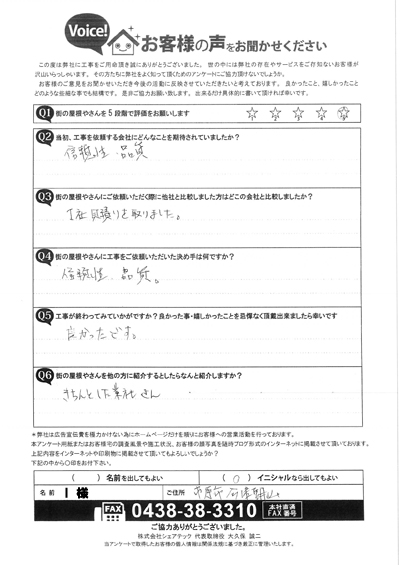 Voice!
お客様の声をお聞かせください
この度は弊社に工事をご用命頂き誠にありがとうございました。世の中には弊社の存在やサービスをご存知ないお客様が
沢山いらっしゃいます。その方たちに弊社をよく知って頂くためのアンケートにご協力頂けないでしょうか。
お客様のご意見をお聞かせいただき今後の活動に反映させていただきたいと考えております。良かったこと、嬉しかったこと
どのような些細な事でも結構です。是非ご協力お願い致します。出来るだけ具体的に書いて頂ければ幸いです。
Q1 街の屋根やさんを5段階で評価をお願いします
☆ ☆ ☆ ☆ ☆
Q2 当初、工事を依頼する会社にどんなことを期待されていましたか?
信頼性 品質
Q3 街の屋根やさんにご依頼いただく際に他社と比較しました方はどこの会社と比較しましたか?
1社見積りを取りました。
Q4 街の屋根やさんに工事をご依頼いただいた決め手は何ですか?
信頼性、品質。
Q5 工事が終わってみていかがですか?良かった事・嬉しかったことを忌憚なく頂戴出来ましたら幸いです
良かったです。
Q6 街の屋根やさんを他の方に紹介するとしたらなんと紹介しますか?
きちんとした業社さん
*弊社は広告宣伝費を極力かけない為にホームページだけを頼りにお客様への営業活動を行っております。
本アンケート用紙またはお客様宅の調査風景や施工状況、お客様の顔写真を随時ブログ形式のインターネットに掲載させて頂いております。
上記内容をインターネットや印刷物に掲載させて頂いてもよろしいでしょうか?
下記の中から〇印をお付け下さい。
( )名前を出してもよい
(○)イニシャルなら出してもよい
名前 I 様
ご住所 市原市
FAX 0438-38-3310 本社直通 FAX番号
ご協力ありがとうございました。
株式会社シェアテック 代表取締役 大久保 誠二
当アンケートで取得したお客様の個人情報は関係法規に基づき厳正に管理いたします。